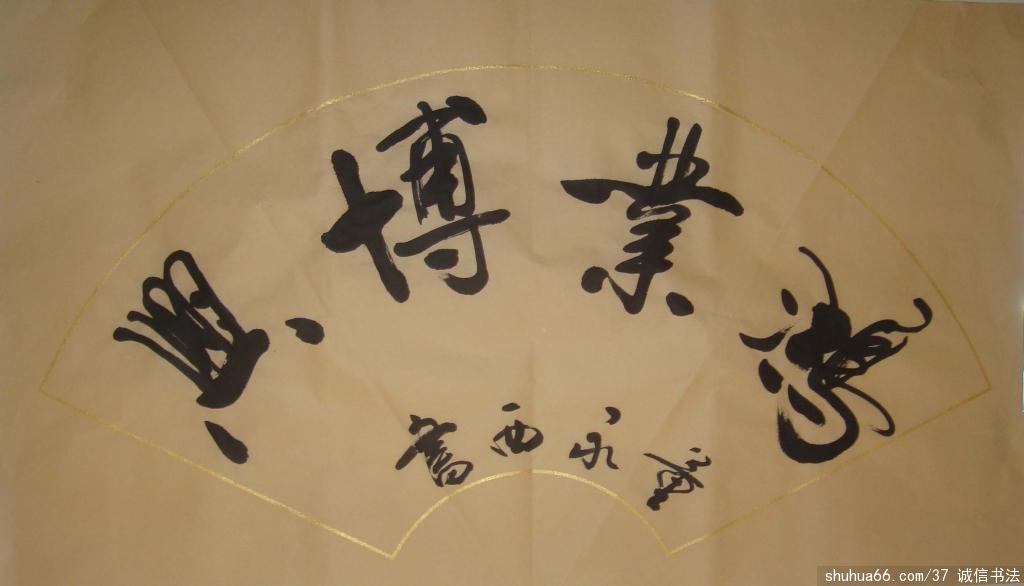 鴻業博興
永西
shuhua66.com/37 诚信书法